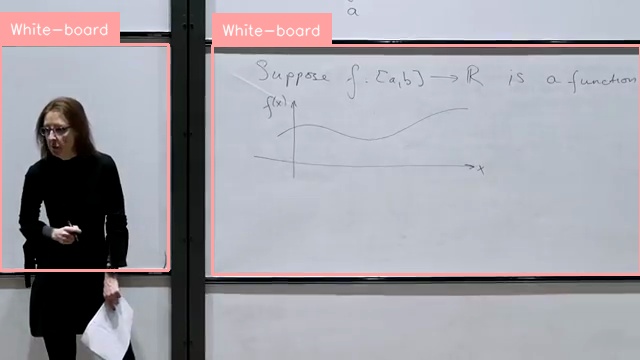 White-board
White-board
a
Suppose f: [a,b] → ℝ is a function
f(x)
x